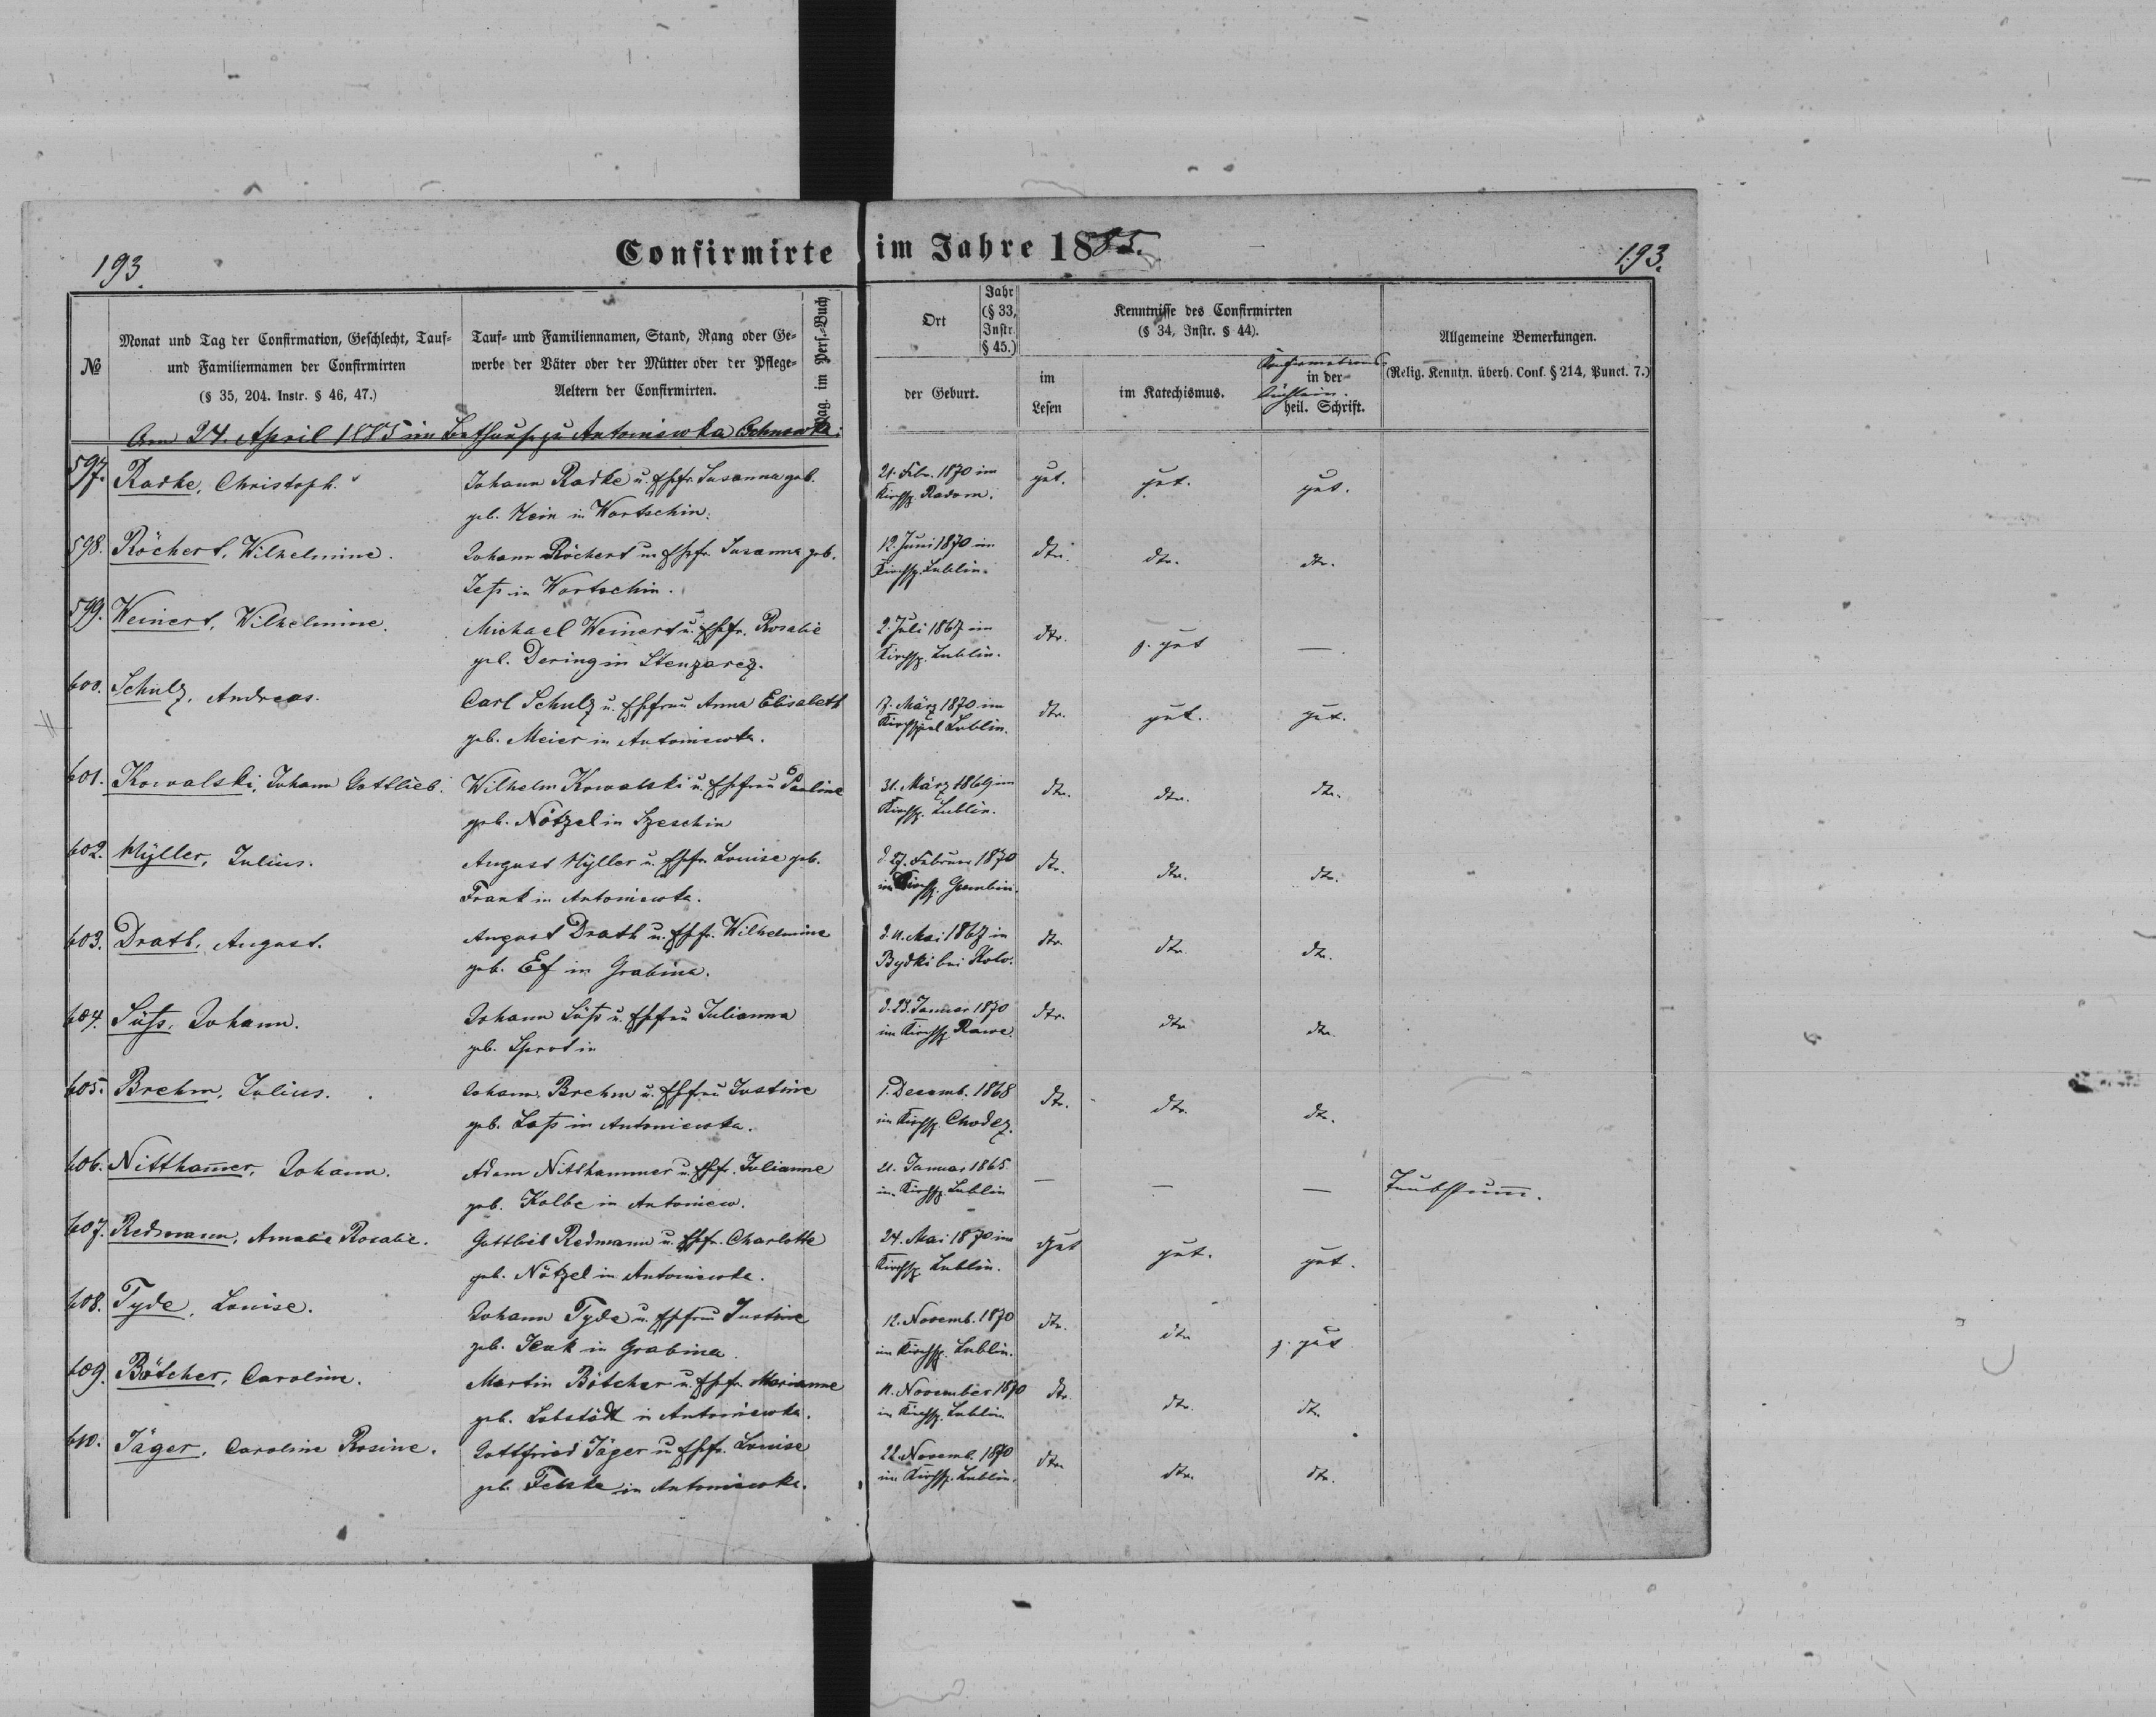 193.
Confirmirte im Jahre 1885.
193.
№
Monat und Tag der Confirmation, Geschlecht, Tauf-
und Familiennamen der Confirmirten
(§ 35, 204. Instr. § 46, 47.)
Tauf- und Familiennamen, Stand, Rang oder Ge-
werbe der Väter oder der Mütter oder der Pflege-
Aeltern der Confirmirten.
Pag. im Pers.-Buch
Ort
Jahr
(§ 33,
Instr.
§ 45.)
der Geburt.
Kenntnisse des Confirmirten
(§ 34, Instr. § 44).
im
Lesen
im Katechismus.
Confirmations
in der
Büchlein.
heil. Schrift.
Allgemeine Bemerkungen.
(Relig. Kenntn. überh. Conf. § 214, Punct. 7.)
Am 24. April 1885 im Bethause zu Antoniewka
597. Radke, Christoph.
Johann Radke u. Ehefr. Susanna geb.
geb. Hein in Wartschin.
21. Febr. 1870 im
Kirchsp. Radom.
gut. gut. gut.
598. Röchert, Wilhelmine.
Johann Röchert u. Ehefr. Susanna geb.
Jess in Wortschin.
12. Juni 1870 im
Kirchsp. Lublin.
dto. dto. dto.
599. Weinert, Wilhelmine.
Michael Weinert u. Ehefr. Rosalie
geb. Dering in Stenzarez.
2. Juli 1867 im
Kirchsp. Lublin.
dto. z. gut —
600. Schulz, Andreas.
Carl Schulz u. Ehefrau Anna Elisabeth
geb. Meier in Antoniewka.
17. März 1870 im
Kirchspiel Lublin.
dto. gut. gut.
601. Kowalski, Johann Gottlieb.
Wilhelm Kowalski u. Ehefrau Pauline
geb. Nötzel in Szeschin
31. März 1869 im
Kirchsp. Lublin.
dto. dto. dto.
602. Hyller, Julius.
August Hyller u. Ehefr. Louise geb.
Frank in Antoniewka.
d. 27. Februar 1870
im Kirchsp. Gombin.
dto. dto. dto.
603. Drath, August.
August Drath u. Ehefr. Wilhelmine
geb. Ef in Grabina.
d. 11. Mai 1867 in
Bydki bei Kolo.
dto. dto. dto.
604. Süss, Johann.
Johann Süss u. Ehefrau Julianna
geb. Sprot in
d. 23. Januar 1870
im Kirchsp. Rawe.
dto. dto. dto.
605. Brehm, Julius.
Johann Brehm u. Ehefrau Justine
geb. Lass in Antoniewka.
1. Decemb. 1868
im Kirchsp. Chodez.
dto. dto. dto.
606. Nitthammer, Johann.
Adam Nitthammer u. Ehefr. Julianne
geb. Kolbe in Antoniew.
21. Januar 1865
im Kirchsp. Lublin
— — — Taubstumm.
607. Redmann, Amalie Rosalie.
Gottlieb Redmann u. Ehefr. Charlotte
geb. Nötzel in Antoniewka.
24. Mai 1870 im
Kirchsp. Lublin.
gut gut. gut.
608. Tyde, Louise.
Johann Tyde u. Ehefrau Justine
geb. Jeuk in Grabina.
12. Novemb. 1870
im Kirchsp. Lublin.
dto. dto z. gut
609. Bötcher, Caroline.
Martin Bötcher u. Ehefr. Marianne
geb. Lobstädt in Antoniewka.
11. November 1870
im Kirchsp. Lublin
dto. dto. dto.
610. Jäger, Caroline Rosine.
Gottfried Jäger u. Ehefr. Louise
geb. Felske in Antoniewka.
22. Novemb. 1870
im Kirchsp. Lublin.
dto. dto. dto.